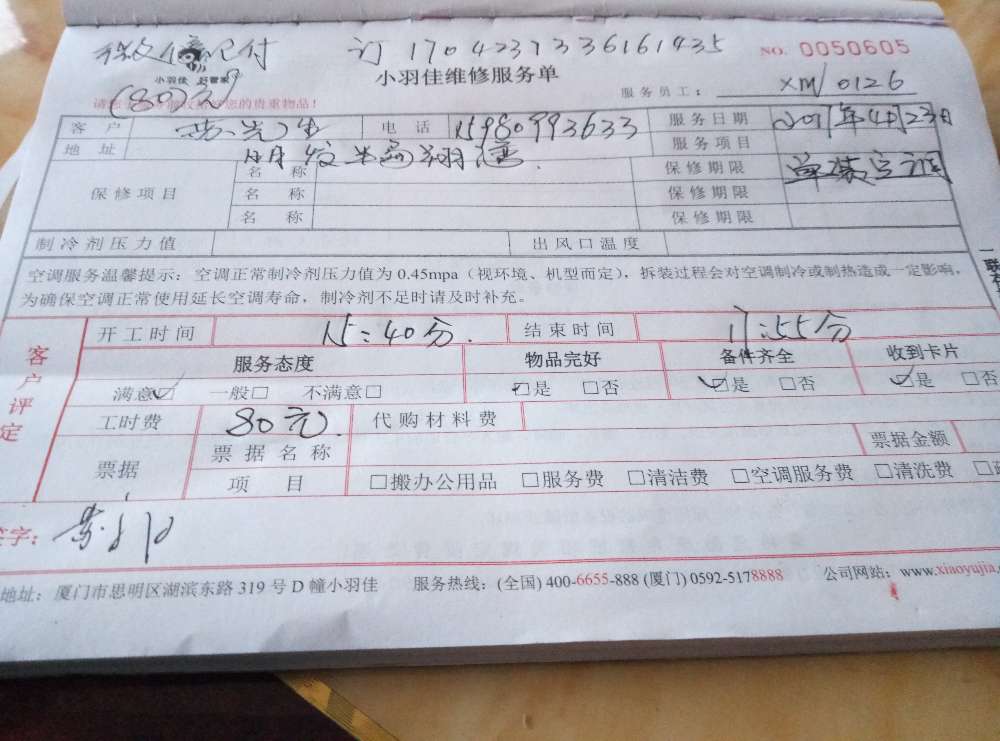 微信已付 订 1704237336161435 NO. 0050605
小羽佳 好管家
小羽佳维修服务单
(80元) 服务员工： XM 0126
客户 先生 电话 15980993633 服务日期 2017年4月23日
地址 明发半岛翔湾 服务项目
保修项目 名称 保修期限 单装空调
名称 保修期限
名称 保修期限
制冷剂压力值 出风口温度
空调服务温馨提示：空调正常制冷剂压力值为 0.45mpa（视环境、机型而定），拆装过程会对空调制冷或制热造成一定影响，
为确保空调正常使用延长空调寿命，制冷剂不足时请及时补充。
客户评定
开工时间 15:40分. 结束时间 17:55分
服务态度 物品完好 备件齐全 收到卡片
满意☑ 一般□ 不满意□ ☑是 □否 ☑是 □否 ☑是 □否
工时费 80元. 代购材料费
票据 票据名称 票据金额
项目 □搬办公用品 □服务费 □清洁费 □空调服务费 □清洗费
签字：
地址：厦门市思明区湖滨东路 319 号 D 幢小羽佳 服务热线：(全国) 400-6655-888 (厦门) 0592-5178888 公司网站：www.xiaoyujia.